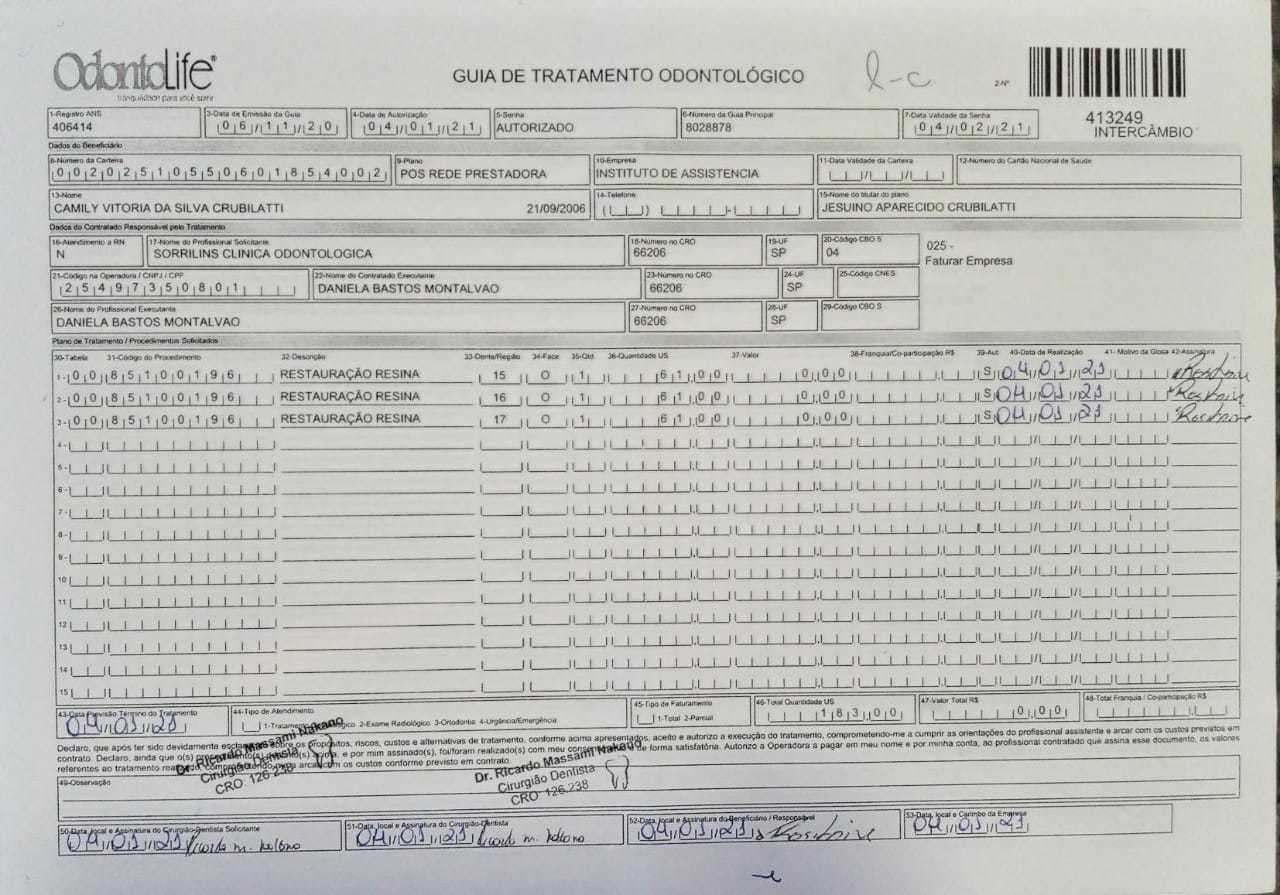 OdontoLife
tranquilidade para você sorrir
GUIA DE TRATAMENTO ODONTOLÓGICO
l-c
2-Nº
413249
INTERCÂMBIO
1-Registro ANS 3-Data de Emissão da Guia 4-Data de Autorização 5-Senha 6-Número da Guia Principal 7-Data Validade da Senha
406414 06/11/20 04/01/21 AUTORIZADO 8028878 04/02/21
Dados do Beneficiário
8-Número da Carteira 9-Plano 10-Empresa 11-Data Validade da Carteira 12-Número do Cartão Nacional de Saúde
00202510550601854002 POS REDE PRESTADORA INSTITUTO DE ASSISTENCIA
13-Nome 14-Telefone 15-Nome do titular do plano
CAMILY VITORIA DA SILVA CRUBILATTI 21/09/2006 JESUINO APARECIDO CRUBILATTI
Dados do Contratado Responsável pelo Tratamento
16-Atendimento a RN 17-Nome do Profissional Solicitante 18-Número no CRO 19-UF 20-Código CBO S
N SORRILINS CLINICA ODONTOLOGICA 66206 SP 04
025 -
Faturar Empresa
21-Código na Operadora / CNPJ / CPF 22-Nome do Contratado Executante 23-Número no CRO 24-UF 25-Código CNES
25497350801 DANIELA BASTOS MONTALVAO 66206 SP
26-Nome do Profissional Executante 27-Número no CRO 28-UF 29-Código CBO S
DANIELA BASTOS MONTALVAO 66206 SP
Plano de Tratamento / Procedimentos Solicitados
30-Tabela 31-Código do Procedimento 32-Descrição 33-Dente/Região 34-Face 35-Qtd 36-Quantidade US 37-Valor 38-Franquia/Co-participação R$ 39-Aut 40-Data de Realização 41- Motivo da Glosa 42-Assinatura
1- 00 85100196 RESTAURAÇÃO RESINA 15 O 1 61,00 0,00 S 04/01/21
2- 00 85100196 RESTAURAÇÃO RESINA 16 O 1 61,00 0,00 S 04/01/21
3- 00 85100196 RESTAURAÇÃO RESINA 17 O 1 61,00 0,00 S 04/01/21
4-
5-
6-
7-
8-
9-
10
11
12
13
14
15
43-Data Previsão Término do Tratamento 44-Tipo de Atendimento 45-Tipo de Faturamento 46-Total Quantidade US 47-Valor Total R$ 48-Total Franquia / Co-participação R$
04/01/21 1-Tratamento Odontológico 2-Exame Radiológico 3-Ortodontia 4-Urgência/Emergência 1-Total 2-Parcial 183,00 0,00
Declaro, que após ter sido devidamente esclarecido sobre os propósitos, riscos, custos e alternativas de tratamento, conforme acima apresentados, aceito e autorizo a execução do tratamento, comprometendo-me a cumprir as orientações do profissional assistente e arcar com os custos previstos em
contrato. Declaro, ainda que o(s) procedimento(s) descrito(s), e por mim assinado(s), foi/foram realizado(s) com meu consentimento e de forma satisfatória. Autorizo a Operadora a pagar em meu nome e por minha conta, ao profissional contratado que assina esse documento, os valores
referentes ao tratamento realizado, comprometendo-me arcar com os custos conforme previsto em contrato.
Dr. Ricardo Massami Nakano
Cirurgião Dentista
CRO 126.238
Dr. Ricardo Massami Nakano
Cirurgião Dentista
CRO 126.238
49-Observação
50-Data, local e Assinatura do Cirurgião-Dentista Solicitante 51-Data, local e Assinatura do Cirurgião-Dentista 52-Data, local e Assinatura do Beneficiário / Responsável 53-Data, local e Carimbo da Empresa
04/01/21 Ricardo M. Nakano 04/01/21 Ricardo M. Nakano 04/01/21 04/01/21